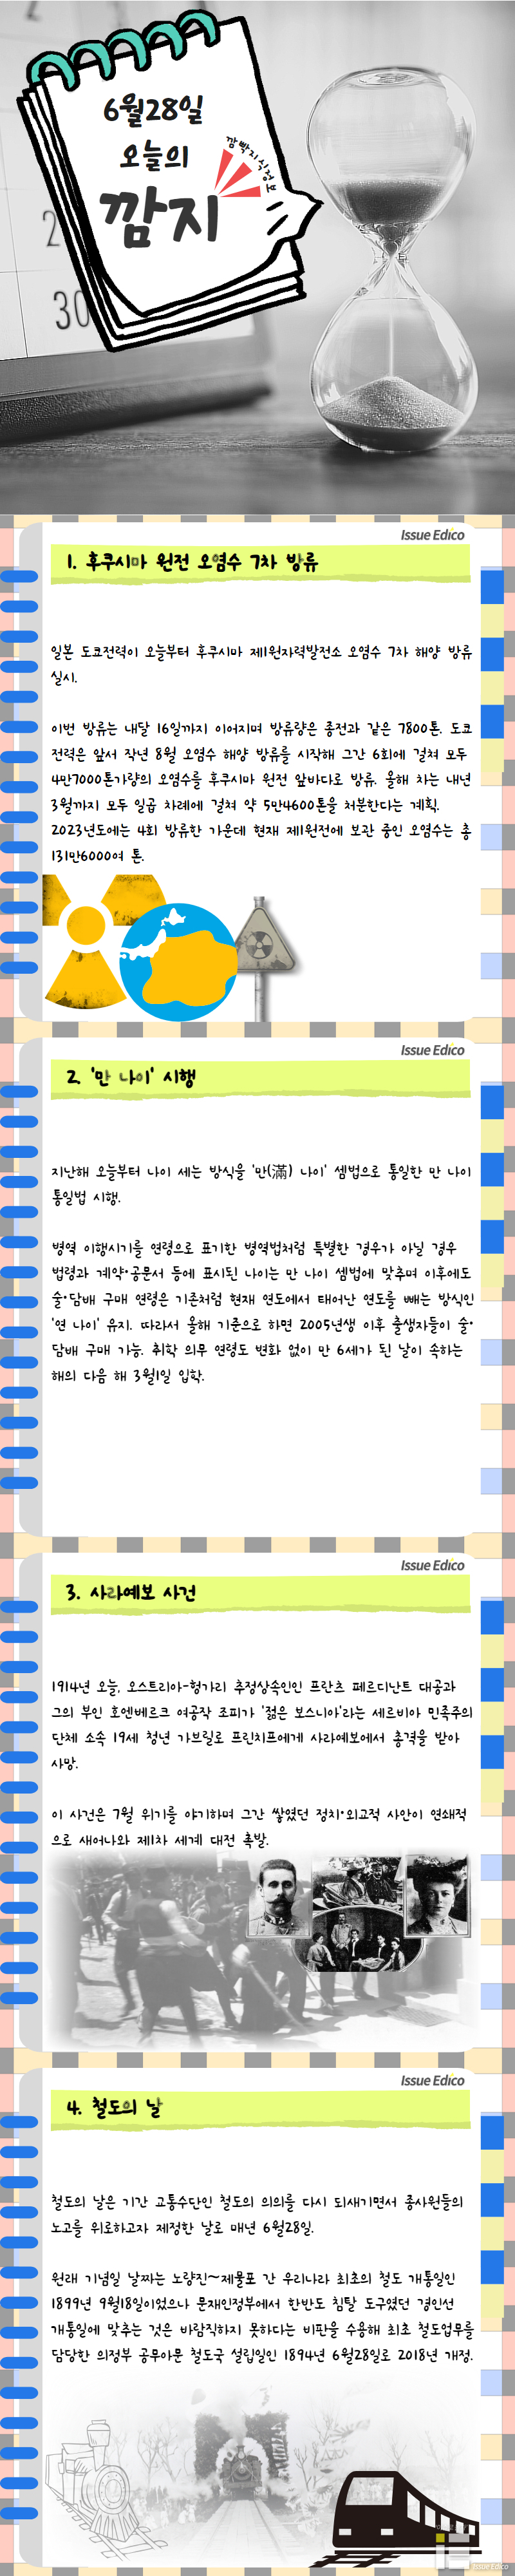 6월28일
오늘의
깜빡지식정보
깜지
2
30
Issue Edico
1. 후쿠시마 원전 오염수 7차 방류
일본 도쿄전력이 오늘부터 후쿠시마 제1원자력발전소 오염수 7차 해양 방류
실시.
이번 방류는 내달 16일까지 이어지며 방류량은 종전과 같은 7800톤. 도쿄
전력은 앞서 작년 8월 오염수 해양 방류를 시작해 그간 6회에 걸쳐 모두
4만7000톤가량의 오염수를 후쿠시마 원전 앞바다로 방류. 올해 차는 내년
3월까지 모두 일곱 차례에 걸쳐 약 5만4600톤을 처분한다는 계획.
2023년도에는 4회 방류한 가운데 현재 제1원전에 보관 중인 오염수는 총
131만6000여 톤.
Issue Edico
2. '만 나이' 시행
지난해 오늘부터 나이 세는 방식을 '만(滿) 나이' 셈법으로 통일한 만 나이
통일법 시행.
병역 이행시기를 연령으로 표기한 병역법처럼 특별한 경우가 아닐 경우
법령과 계약·공문서 등에 표시된 나이는 만 나이 셈법에 맞추며 이후에도
술·담배 구매 연령은 기존처럼 현재 연도에서 태어난 연도를 빼는 방식인
'연 나이' 유지. 따라서 올해 기준으로 하면 2005년생 이후 출생자들이 술·
담배 구매 가능. 취학 의무 연령도 변화 없이 만 6세가 된 날이 속하는
해의 다음 해 3월1일 입학.
Issue Edico
3. 사라예보 사건
1914년 오늘, 오스트리아-헝가리 추정상속인인 프란츠 페르디난트 대공과
그의 부인 호엔베르크 여공작 조피가 '젊은 보스니아'라는 세르비아 민족주의
단체 소속 19세 청년 가브릴로 프린치프에게 사라예보에서 총격을 받아
사망.
이 사건은 7월 위기를 야기하며 그간 쌓였던 정치·외교적 사안이 연쇄적
으로 새어나와 제1차 세계 대전 촉발.
Issue Edico
4. 철도의 날
철도의 날은 기간 교통수단인 철도의 의의를 다시 되새기면서 종사원들의
노고를 위로하고자 제정한 날로 매년 6월28일.
원래 기념일 날짜는 노량진~제물포 간 우리나라 최초의 철도 개통일인
1899년 9월18일이었으나 문재인정부에서 한반도 침탈 도구였던 경인선
개통일에 맞추는 것은 바람직하지 못하다는 비판을 수용해 최초 철도업무를
담당한 의정부 공무아문 철도국 설립일인 1894년 6월28일로 2018년 개정.
Issue Edico